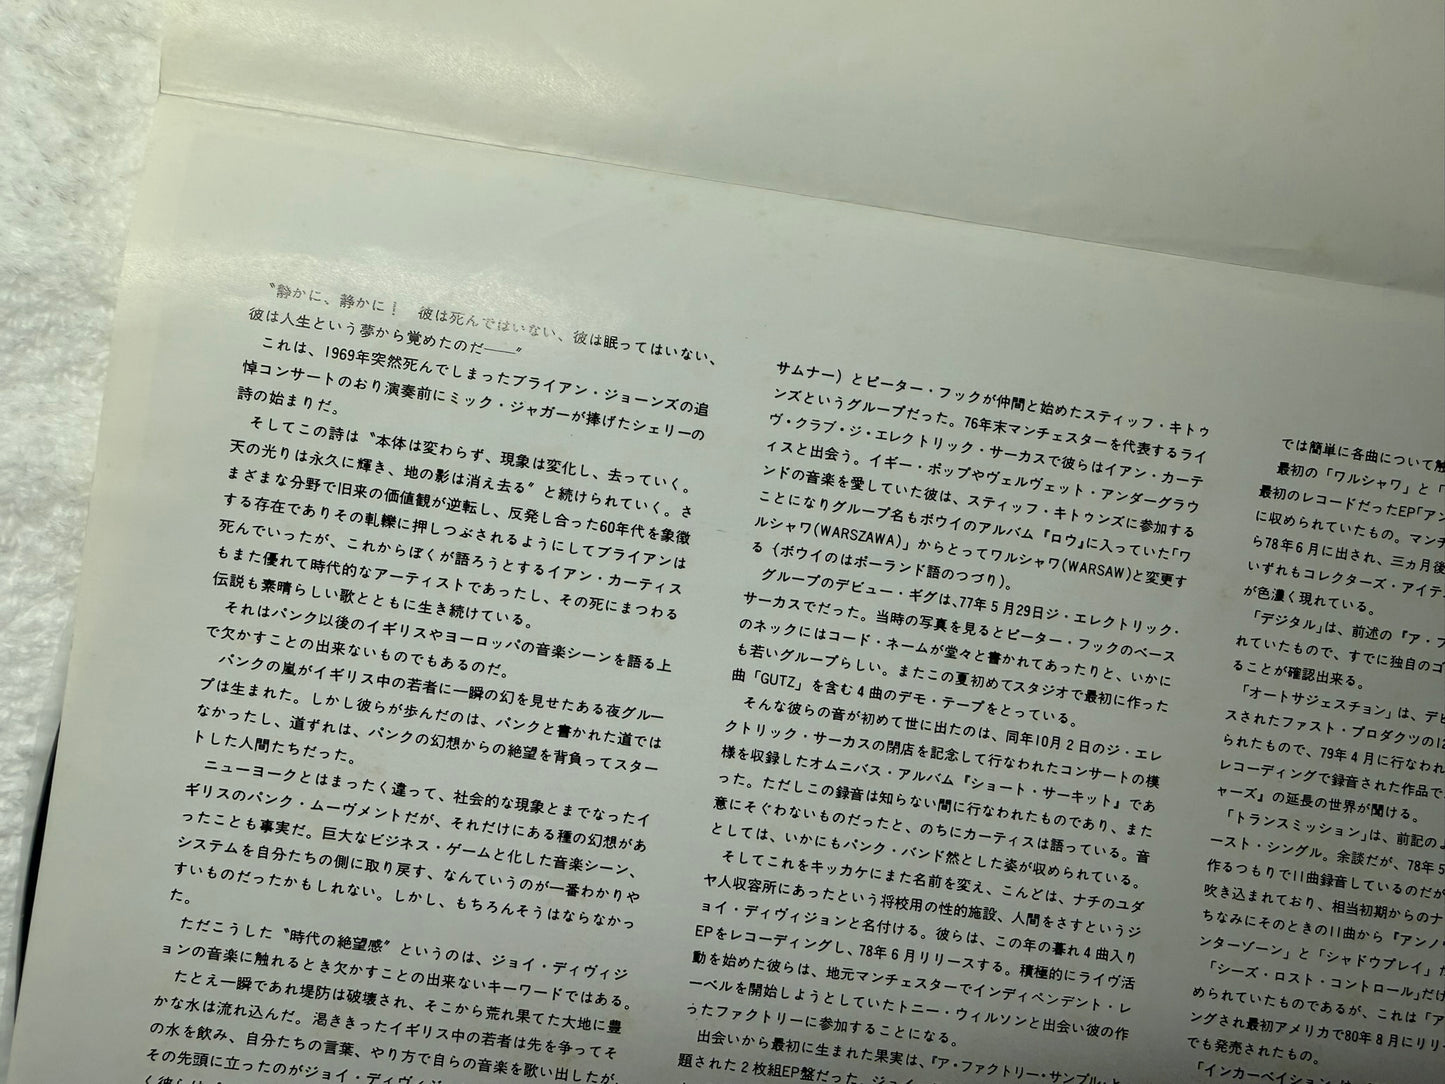 〝静かに、静かに！　彼は死んではいない、彼は眠ってはいない、
彼は人生という夢から覚めたのだ——〟
これは、1969年突然死んでしまったブライアン・ジョーンズの追
悼コンサートのおり演奏前にミック・ジャガーが捧げたシェリーの
詩の始まりだ。
そしてこの詩は〝本体は変わらず、現象は変化し、去っていく。
天の光りは永久に輝き、地の影は消え去る〟と続けられていく。さ
まざまな分野で旧来の価値観が逆転し、反発し合った60年代を象徴
する存在でありその軋轢に押しつぶされるようにしてブライアンは
死んでいったが、これからぼくが語ろうとするイアン・カーティス
もまた優れて時代的なアーティストであったし、その死にまつわる
伝説も素晴らしい歌とともに生き続けている。
それはパンク以後のイギリスやヨーロッパの音楽シーンを語る上
で欠かすことの出来ないものでもあるのだ。
パンクの嵐がイギリス中の若者に一瞬の幻を見せたある夜グルー
プは生まれた。しかし彼らが歩んだのは、パンクと書かれた道では
なかったし、道ずれは、パンクの幻想からの絶望を背負ってスター
トした人間たちだった。
ニューヨークとはまったく違って、社会的な現象とまでなったイ
ギリスのパンク・ムーヴメントだが、それだけにある種の幻想があ
ったことも事実だ。巨大なビジネス・ゲームと化した音楽シーン、
システムを自分たちの側に取り戻す、なんていうのが一番わかりや
すいものだったかもしれない。しかし、もちろんそうはならなかっ
た。
ただこうした〝時代の絶望感〟というのは、ジョイ・ディヴィジ
ョンの音楽に触れるとき欠かすことの出来ないキーワードではある。
たとえ一瞬であれ堤防は破壊され、そこから荒れ果てた大地に豊
かな水は流れ込んだ。渇ききったイギリス中の若者は先を争ってそ
の水を飲み、自分たちの言葉、やり方で自らの音楽を歌い出したが、
その先頭に立ったのがジョイ・ディヴィジ
サムナー）とピーター・フックが仲間と始めたスティッフ・キトゥ
ンズというグループだった。76年末マンチェスターを代表するライ
ヴ・クラブ・ジ・エレクトリック・サーカスで彼らはイアン・カーテ
ィスと出会う。イギー・ポップやヴェルヴェット・アンダーグラウ
ンドの音楽を愛していた彼は、スティッフ・キトゥンズに参加する
ことになりグループ名もボウイのアルバム『ロウ』に入っていた「ワ
ルシャワ(WARSZAWA)」からとってワルシャワ(WARSAW)と変更す
る（ボウイのはポーランド語のつづり）。
グループのデビュー・ギグは、77年５月29日ジ・エレクトリック・
サーカスでだった。当時の写真を見るとピーター・フックのベース
のネックにはコード・ネームが堂々と書かれてあったりと、いかに
も若いグループらしい。またこの夏初めてスタジオで最初に作った
曲「GUTZ」を含む４曲のデモ・テープをとっている。
そんな彼らの音が初めて世に出たのは、同年10月２日のジ・エレ
クトリック・サーカスの閉店を記念して行なわれたコンサートの模
様を収録したオムニバス・アルバム『ショート・サーキット』であ
った。ただしこの録音は知らない間に行なわれたものであり、また
意にそぐわないものだったと、のちにカーティスは語っている。音
としては、いかにもパンク・バンド然とした姿が収められている。
そしてこれをキッカケにまた名前を変え、こんどは、ナチのユダ
ヤ人収容所にあったという将校用の性的施設、人間をさすというジ
ョイ・ディヴィジョンと名付ける。彼らは、この年の暮れ４曲入り
EPをレコーディングし、78年６月リリースする。積極的にライヴ活
動を始めた彼らは、地元マンチェスターでインディペンデント・レ
ーベルを開始しようとしていたトニー・ウィルソンと出会い彼の作
ったファクトリーに参加することになる。
出会いから最初に生まれた果実は、『ア・ファクトリー・サンプル』と
題された２枚組EP盤だった。
では簡単に各曲について触
最初の「ワルシャワ」と「
最初のレコードだったEP「アン
に収められていたもの。マンチ
ら78年６月に出され、三ヵ月後
いずれもコレクターズ・アイテ
が色濃く現れている。
「デジタル」は、前述の『ア・フ
れていたもので、すでに独自のゴ
ることが確認出来る。
「オートサジェスチョン」は、デビ
スされたファスト・プロダクツの12
られたもので、79年４月に行なわれ
レコーディングで録音された作品で
ャーズ』の延長の世界が聞ける。
「トランスミッション」は、前記のよ
ースト・シングル。余談だが、78年５
作るつもりで11曲録音しているのだが
吹き込まれており、相当初期からのナ
ちなみにそのときの11曲から『アンノ
ンターゾーン」と「シャドウプレイ」だ
「シーズ・ロスト・コントロール」だけ
められていたものであるが、これは「ア
ングされ最初アメリカで80年８月にリリー
でも発売されたもの。
「インカーベイション」